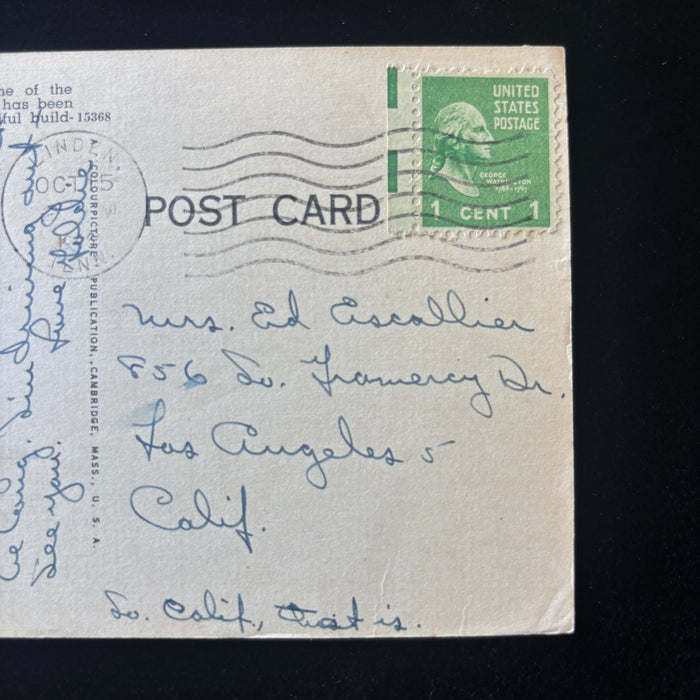 ne of the
has been
ful build- 15368
LINDEN,
OCT 15
TENN.
UNITED
STATES
POSTAGE
GEORGE
WASHINGTON
1789-1797
1 CENT 1
POST CARD
"COLOURPICTURE" PUBLICATION, CAMBRIDGE, MASS., U. S. A.
Mrs. Ed Escallier
856 So. Gramercy Dr.
Los Angeles 5
Calif.
So. Calif., that is.
driving out
see you.
Love